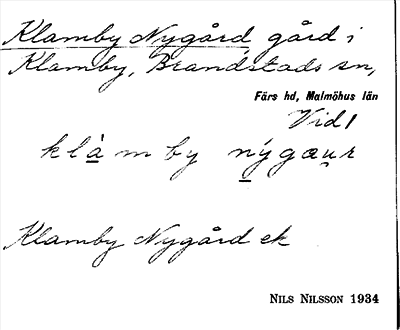 Klamby Nygård gård i
Klamby, Brandstads sn,
Färs hd, Malmöhus län
Vid 1
klàmby nýgæur
Klamby Nygård ek
NILS NILSSON 1934